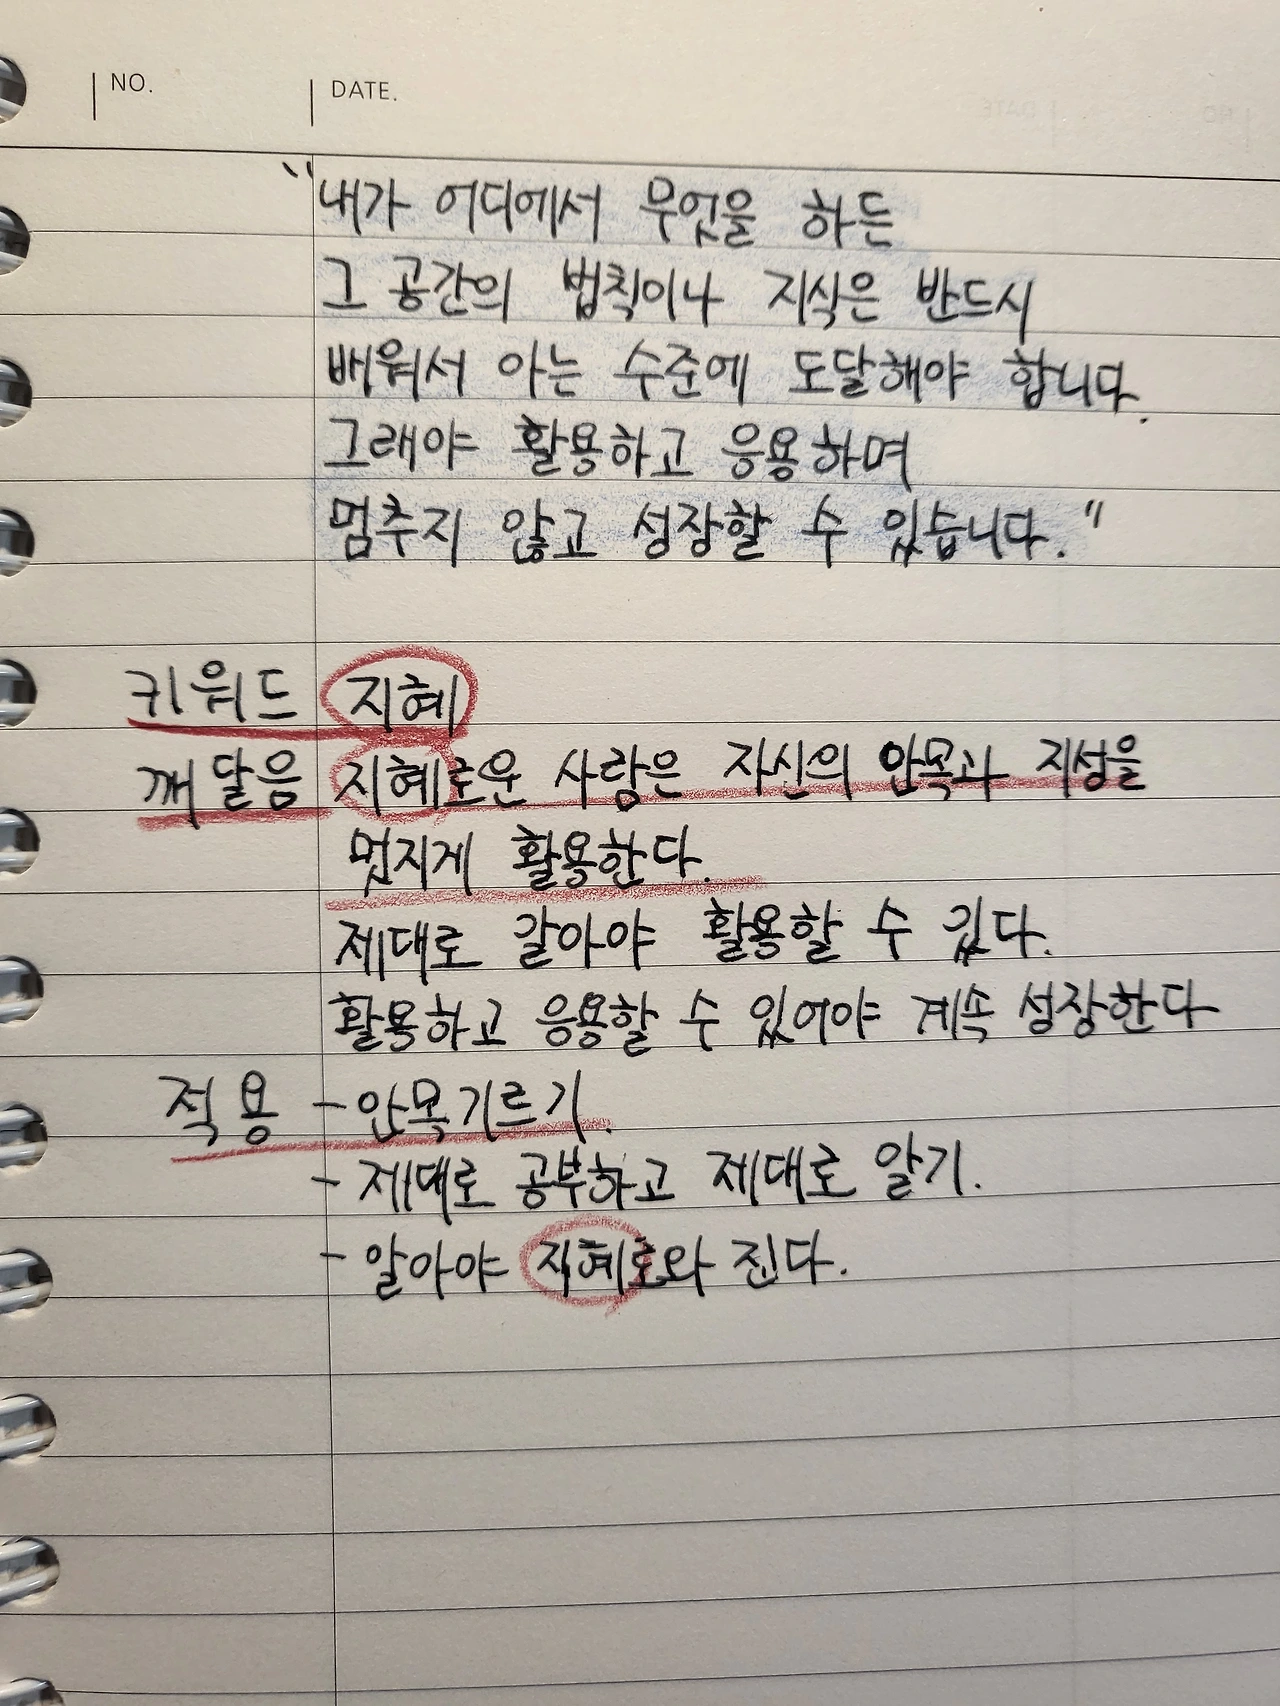 NO. DATE.
"내가 어디에서 무엇을 하든
그 공간의 법칙이나 지식은 반드시
배워서 아는 수준에 도달해야 합니다.
그래야 활용하고 응용하며
멈추지 않고 성장할 수 있습니다."
키워드 지혜
깨달음 지혜로운 사람은 자신의 안목과 지성을
멋지게 활용한다.
제대로 갈아야 활용할 수 있다.
활용하고 응용할 수 있어야 계속 성장한다
적용 - 안목기르기.
- 제대로 공부하고 제대로 알기.
- 알아야 지혜로와 진다.